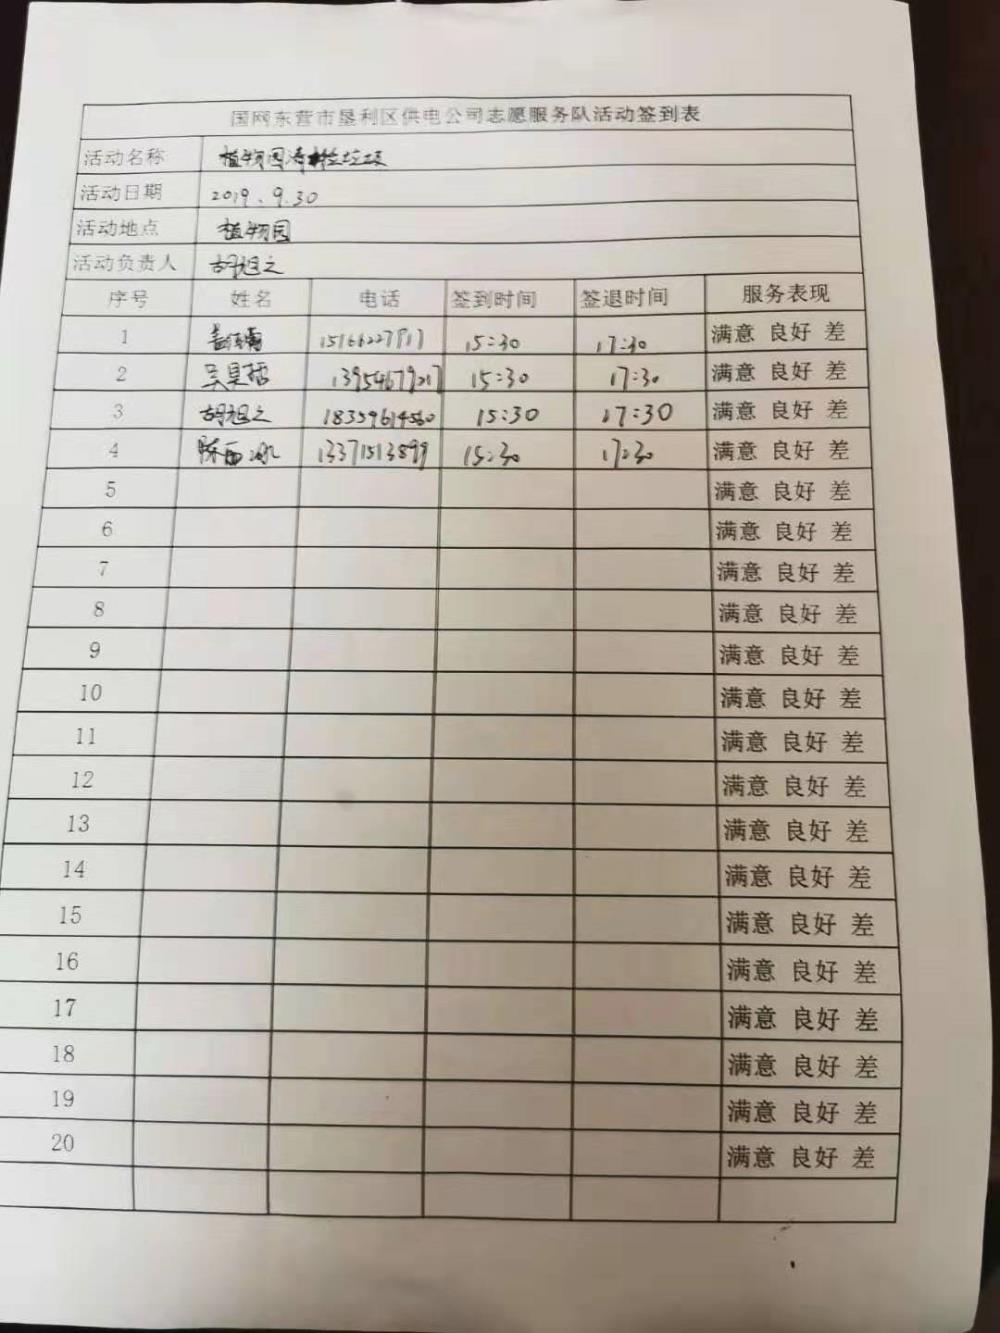 国网东营市垦利区供电公司志愿服务队活动签到表
活动名称 植物园清垃圾
活动日期 2019.9.30
活动地点 植物园
活动负责人 胡旭之
序号 姓名 电话 签到时间 签退时间 服务表现
1 15166227917 15:30 17:30 满意 良好 差
2 13954679217 15:30 17:30 满意 良好 差
3 胡旭之 18359614560 15:30 17:30 满意 良好 差
4 13371513899 15:30 17:30 满意 良好 差
5 满意 良好 差
6 满意 良好 差
7 满意 良好 差
8 满意 良好 差
9 满意 良好 差
10 满意 良好 差
11 满意 良好 差
12 满意 良好 差
13 满意 良好 差
14 满意 良好 差
15 满意 良好 差
16 满意 良好 差
17 满意 良好 差
18 满意 良好 差
19 满意 良好 差
20 满意 良好 差